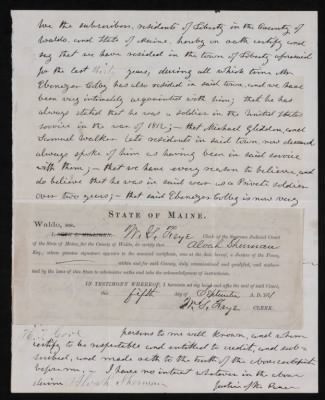 We the subscribers, residents of Liberty in the County of
Waldo, and State of Maine, hereby on oath certify and
say that we have resided in the town of Liberty aforesaid
for the last thirty years, during all which time Mr.
Ebenezer Colby has also resided in said town, and we have
been very intimately acquainted with him; that he has
always stated that he was a soldier in the United States
service in the war of 1812; – that Michael Gliddon, and
Samuel Walker late residents in said town, now deceased
always spoke of him as having been in said service
with them; – that we have every reason to believe, and
do believe that he was in said war as a Private soldier
over two years; – that said Ebenezer Colby is now very
STATE OF MAINE.
Waldo, ss.
I, W. G. Frye, Clerk of the Supreme Judicial Court
of the State of Maine, for the County of Waldo, do certify that Alvah Sherman
Esq., whose genuine signature appears to the annexed certificate, was at the date thereof, a Justice of the Peace,
within and for said County, duly commissioned and qualified, and authorized
by the laws of this State to administer oaths and take the acknowledgment of instruments.
IN TESTIMONY WHEREOF, I hereunto set my hand and affix the seal of said Court, this
fifth day of September A. D. 18
W. G. Frye, CLERK.
persons to me well known, and whom
certify to be respectable and entitled to credit, and subscribed,
and made oath to the truth of the above
before me, – I have no interest whatever in the above
claim Alvah Sherman
Justice of the Peace